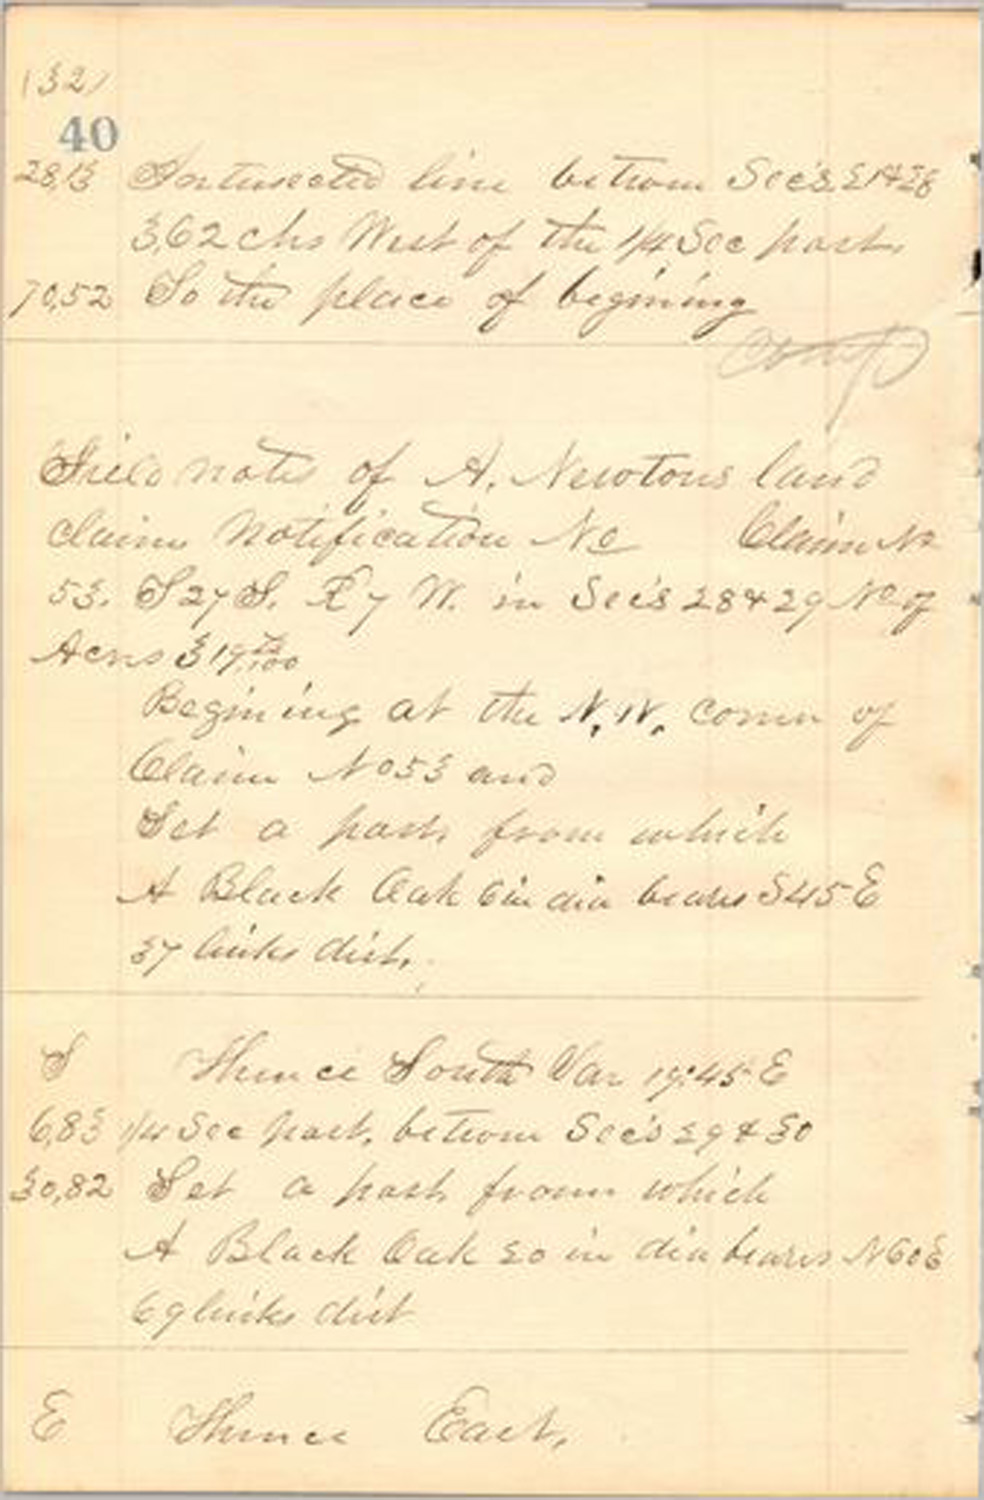 (32)
40
28,13 Intersected line betwen Sec's 21 & 28
3,62 chs West of the 1/4 Sec post,
70,52 To the place of begining
Comp
Field notes of A. Newtons land
claim Notification No Claim No
53. T 27 S. R 7 W. in Sec's 28 & 29 No of
Acres 319, /100
Begining at the N. W. corner of
Claim No 53 and
Set a post, from which
A Black Oak 6 in dia bears S 45 E
37 links dist.
S Thence South Var 19°45 E
6,83 1/4 Sec post, betwen Sec's 29 & 30
30,82 Set a post from which
A Black Oak 20 in dia bears N 60 E
69 links dist
E Thence East,